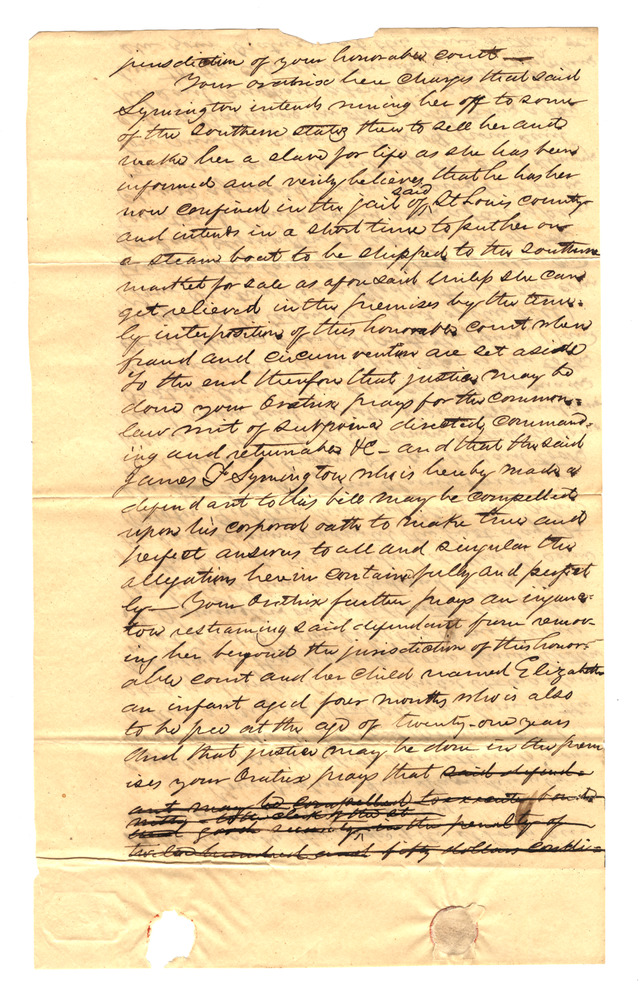 jurisdiction of your honorable court —
Your oratrix here charges that said
Symington intends runing her off to some
of the southern states there to sell her and
make her a slave for life as she has been
informed and verily believes, that he has her
now confined in the jail of said St Louis county
and intends in a short time to put her on
a steam boat to be shipped to the southern
market for sale as afore said unless she can
get relieved in the premises by the time-
ly interposition of this honorable court where
fraud and circumvention are set aside
To the end therefore that justice may be
done your Oratrix prays for the common-
law writ of subpoena directed, command-
ing and returnable &c – and that the said
James F Symington who is hereby made a
defendant to this bill may be compelled
upon his corporal oath to make true and
perfect answers to all and singular the
allegations herein contained fully and perfect
ly – Your Oratrix further prays an injunc-
tion restraining said defendant from remov-
ing her beyond the jurisdiction of this honor-
able court and her child named Elizabeth
an infant aged four months who is also
to be free at the age of twenty-one years
And that justice may be done in the prem
ises your Oratrix prays that said defend-
ant may be compelled to execute bond
with to the clerk of the ct
and good security in the penalty of
twelve hundred and fifty dollars condi-